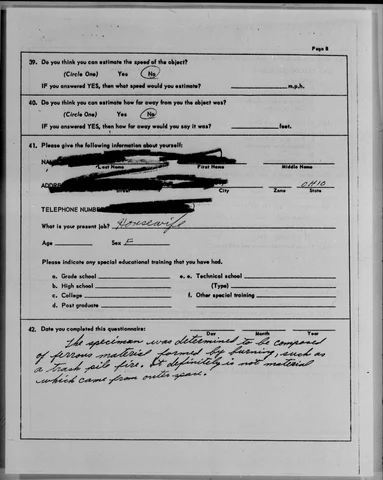 Page 8
39. Do you think you can estimate the speed of the object?
(Circle One) Yes No
IF you answered YES, then what speed would you estimate? m.p.h.
40. Do you think you can estimate how far away from you the object was?
(Circle One) Yes No
IF you answered YES, then how far away would you say it was? feet.
41. Please give the following information about yourself:
Last Name First Name Middle Name
ADDRE OHIO
Street City Zone State
TELEPHONE NUMBER
What is your present job? Housewife
Age Sex F
Please indicate any special educational training that you have had.
a. Grade school e. Technical school
b. High school (Type)
c. College f. Other special training
d. Post graduate
42. Date you completed this questionnaire:
Day Month Year
The specimen was determined to be composed
of ferrous material formed by burning, such as
a trash pile fire. It definitely is not material
which came from outer space.